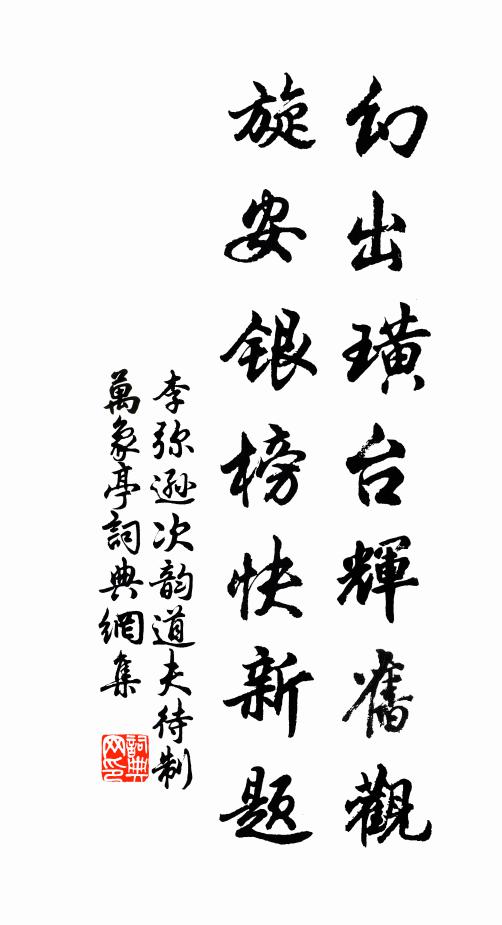 幻出璜台輝舊觀
旋安銀榜快新题
李弥遜次韵道夫待制
萬象亭詞典網集
詞典网印